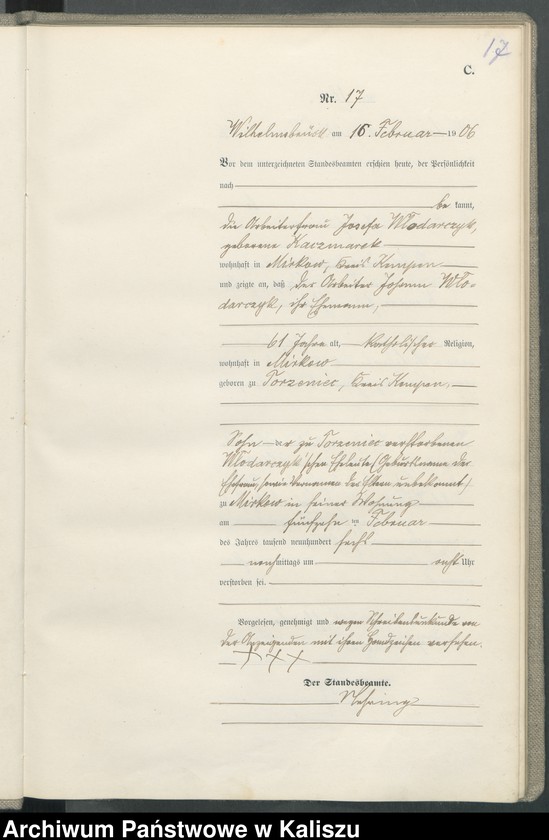 17
C.
Nr. 17
Wilhelmsbrück am 16. Februar 1906
Vor dem unterzeichneten Standesbeamten erschien heute, der Persönlichkeit
nach
be kannt,
die Arbeiterfrau Josefa Wlodarczyk,
geborene Kaczmarek
wohnhaft in Mirkow, Kreis Kempen
und zeigte an, daß der Arbeiter Johann Wlo-
darczyk, ihr Ehemann,
61 Jahre alt, katholischer Religion,
wohnhaft in Mirkow
geboren zu Torzeniec, Kreis Kempen,
Sohn der zu Torzeniec verstorbenen
Wlodarczyk'schen Eheleute (Geburtsname der
Ehefrau, sowie Vornamen der Eltern unbekannt)
zu Mirkow in seiner Wohnung
am fünfzehn ten Februar
des Jahres tausend neunhundert sechs
nachmittags um acht Uhr
verstorben sei.
Vorgelesen, genehmigt und wegen Schreibensunkunde von
der Anzeigenden mit ihren Handzeichen versehen.
+++
Der Standesbeamte.
Nehring
Archiwum Państwowe w Kaliszu